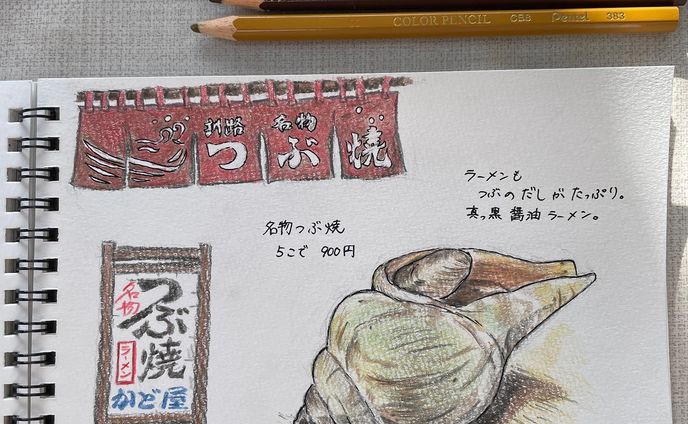 COLOR PENCIL CB8 Pentel 383
釧路 名物
つぶ焼
ラーメンも
つぶのだしがたっぷり。
真っ黒醤油ラーメン。
名物つぶ焼
5こで 900円
名物
つぶ焼
ラーメン
かど屋